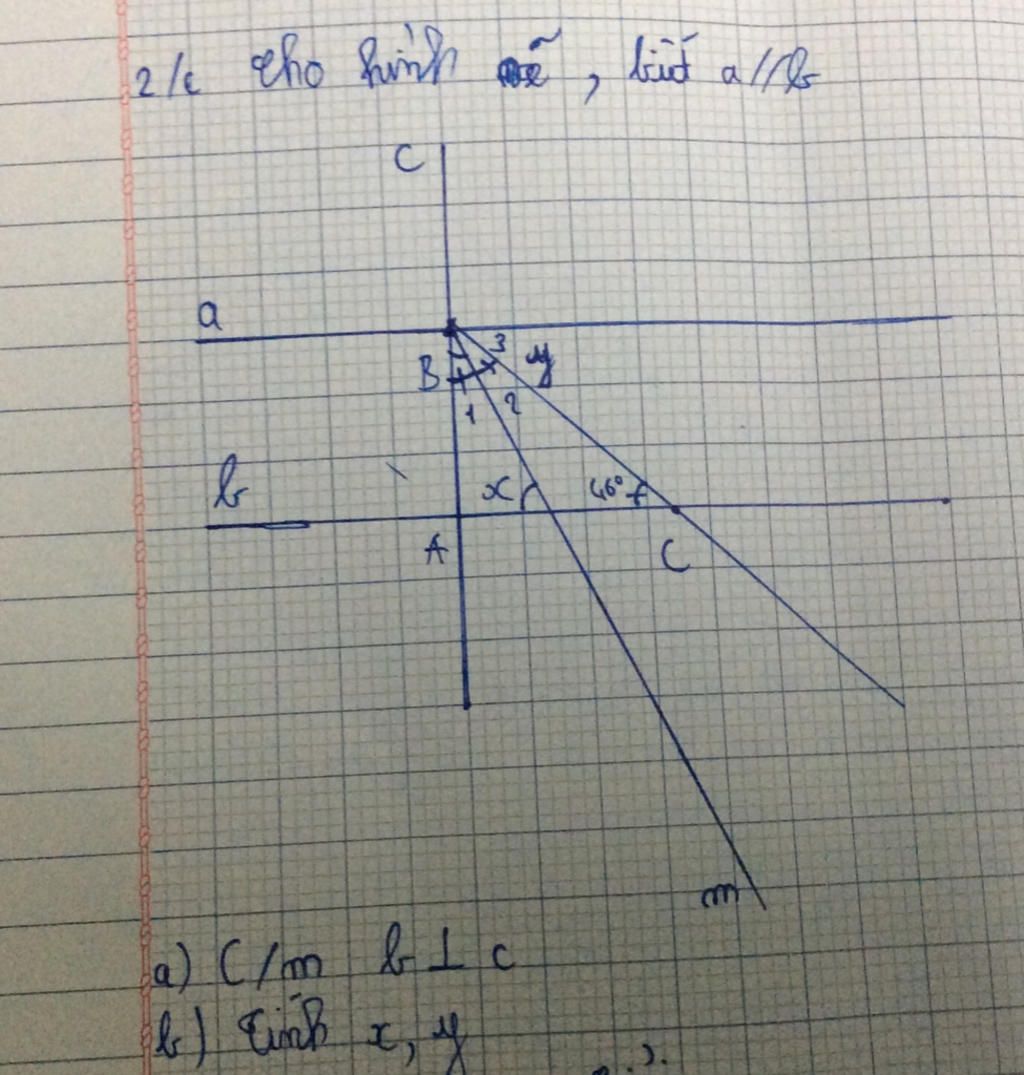 2/ Cho hình vẽ, biết a//b
C
a
3
B
y
1
2
b
x
46°
A
C
m
a) C/m b ⊥ c
b) Tính x, y